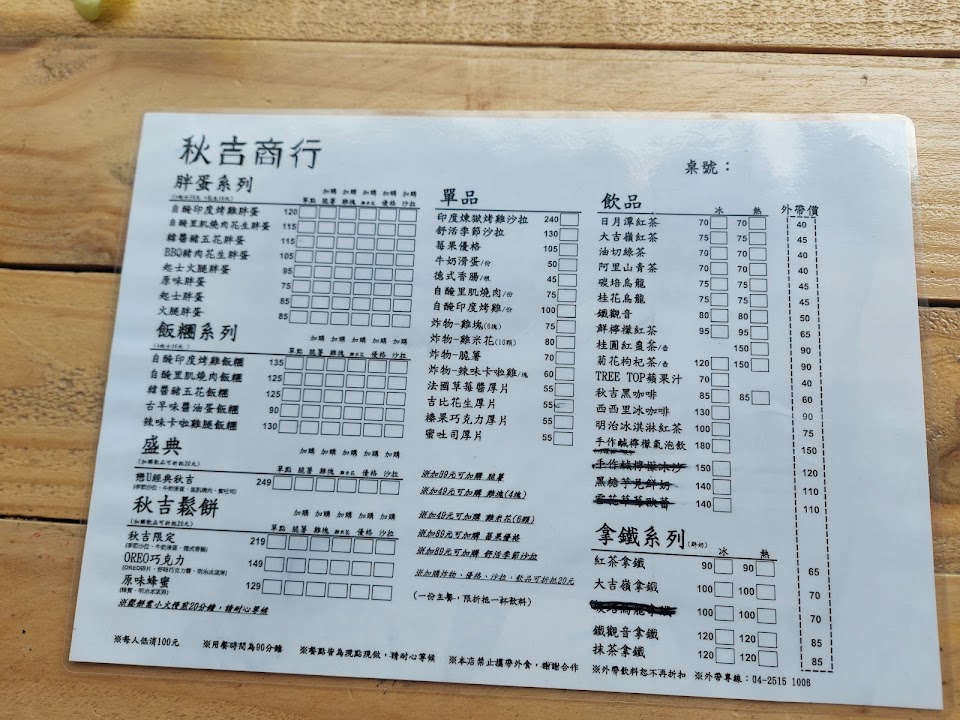 秋吉商行
桌號：
胖蛋系列
加購 加購 加購 加購 加購
單點 脆薯 雞塊 優格 沙拉
自醃印度烤雞胖蛋 120
自醃里肌燒肉花生胖蛋 115
韓醬豬五花胖蛋 115
BBQ豬肉花生胖蛋 105
起士火腿胖蛋 95
原味胖蛋 75
起士胖蛋 85
火腿胖蛋 85
飯糰系列
加購 加購 加購 加購 加購
單點 脆薯 雞塊 優格 沙拉
自醃印度烤雞飯糰 135
自醃里肌燒肉飯糰 125
韓醬豬五花飯糰 125
古早味醬油蛋飯糰 90
辣味卡啦雞腿飯糰 130
盛典
(加購飲品可折抵20元)
加購 加購 加購 加購 加購
單點 脆薯 雞塊 優格 沙拉
戀U經典秋吉 249
秋吉鬆餅
(加購飲品可折抵20元)
加購 加購 加購 加購 加購
單點 脆薯 雞塊 優格 沙拉
秋吉限定 219
OREO巧克力 149
原味蜂蜜 129
(蜂蜜、明治冰淇淋)
※鬆餅需小火慢煎20分鐘，請耐心等候
單品
印度煉獄烤雞沙拉 240
舒活季節沙拉 130
莓果優格 105
牛奶滑蛋/份 50
德式香腸/根 45
自醃里肌燒肉/份 75
自醃印度烤雞/份 100
炸物-雞塊(6塊) 75
炸物-雞米花(10顆) 80
炸物-脆薯 70
炸物-辣味卡啦雞/塊 60
法國草莓醬厚片 55
吉比花生厚片 55
榛果巧克力厚片 55
蜜吐司厚片 55
※加39元可加購 脆薯
※加49元可加購 雞塊(4塊)
※加49元可加購 雞米花(6顆)
※加89元可加購 莓果優格
※加89元可加購 舒活季節沙拉
※加購炸物、優格、沙拉，飲品可折抵20元
(一份主餐，限折抵一杯飲料)
飲品
冰 熱 外帶價
日月潭紅茶 70 70 40
大吉嶺紅茶 75 75 45
油切綠茶 70 70 40
阿里山青茶 70 70 40
碳培烏龍 75 75 45
桂花烏龍 75 75 50
鐵觀音 80 80 65
鮮檸檬紅茶 95 95 50
桂圓紅棗茶/壺 150 90
菊花枸杞茶/壺 120 150 90
TREE TOP蘋果汁 70 40
秋吉黑咖啡 85 85 60
西西里冰咖啡 130 90
明治冰淇淋紅茶 100 75
手作鹹檸檬氣泡飲 180 150
手作鹹檸檬冰沙 150 120
黑糖芋見鮮奶 140 110
140 110
拿鐵系列(鮮奶)
冰 熱
紅茶拿鐵 90 90 65
大吉嶺拿鐵 100 100 70
100 100 70
鐵觀音拿鐵 120 120 85
抹茶拿鐵 120 120 85
※每人低消100元 ※用餐時間為90分鐘 ※餐點皆為現點現做，請耐心等候 ※本店禁止攜帶外食，謝謝合作 ※外帶飲料恕不再折扣 ※外帶專線：04-2515 1006